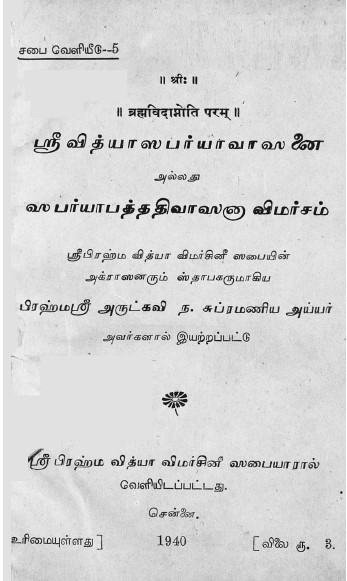 சபை வெளியீடு--5
॥ श्रीः ॥
॥ ब्रह्मविदाप्नोति परम् ॥
ஸ்ரீ வித்யாஸபர்யாவாஸனை
அல்லது
ஸபர்யாபத்ததிவாஸநா விமர்சம்
ஸ்ரீபிரஹ்ம வித்யா விமர்சினீ ஸபையின்
அக்ராஸனரும் ஸ்தாபகருமாகிய
பிரஹ்மஸ்ரீ அருட்கவி ந. சுப்ரமணிய அய்யர்
அவர்களால் இயற்றப்பட்டு
ஸ்ரீ பிரஹ்ம வித்யா விமர்சினீ ஸபையாரால்
வெளியிடப்பட்டது.
சென்னை.
உரிமையுள்ளது ] 1940 [ விலை ரூ. 3.